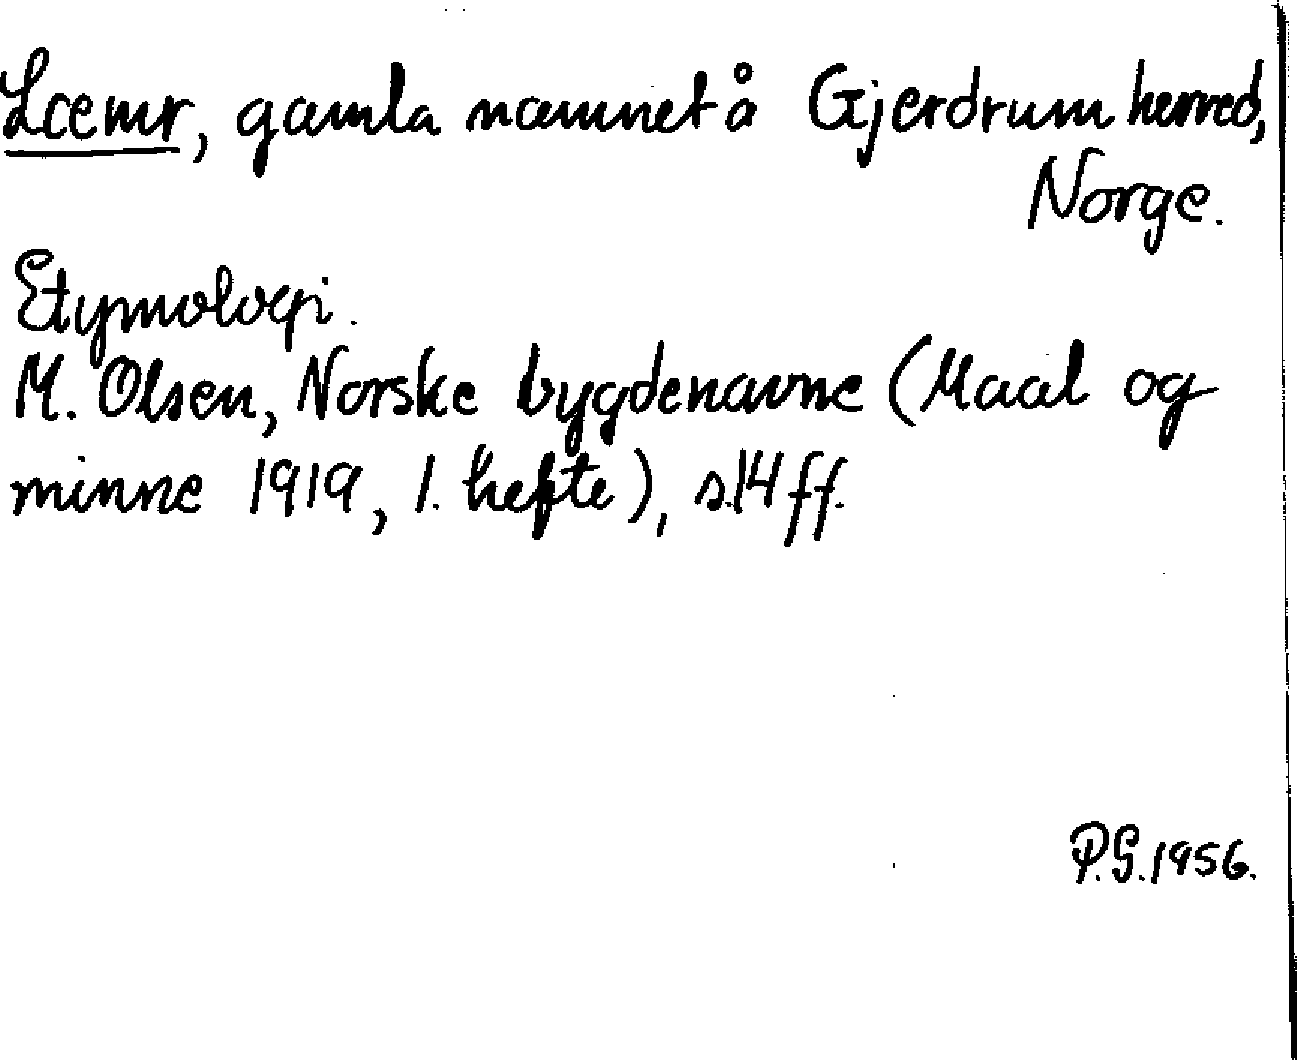 Lœmr, gamla namnet å Gjerdrum herred,
Norge.
Etymologi.
M. Olsen, Norske bygdenavne (Maal og
minne 1919, 1. hefte), s. 14 ff.
P.G. 1956.